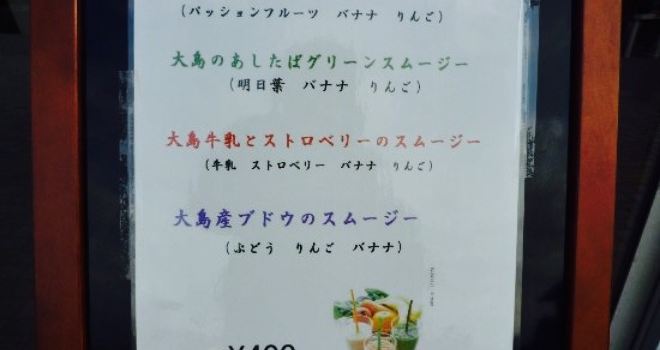 (パッションフルーツ バナナ りんご)
大島のあしたばグリーンスムージー
(明日葉 バナナ りんご)
大島牛乳とストロベリーのスムージー
(牛乳 ストロベリー バナナ りんご)
大島産ブドウのスムージー
(ぶどう りんご バナナ)